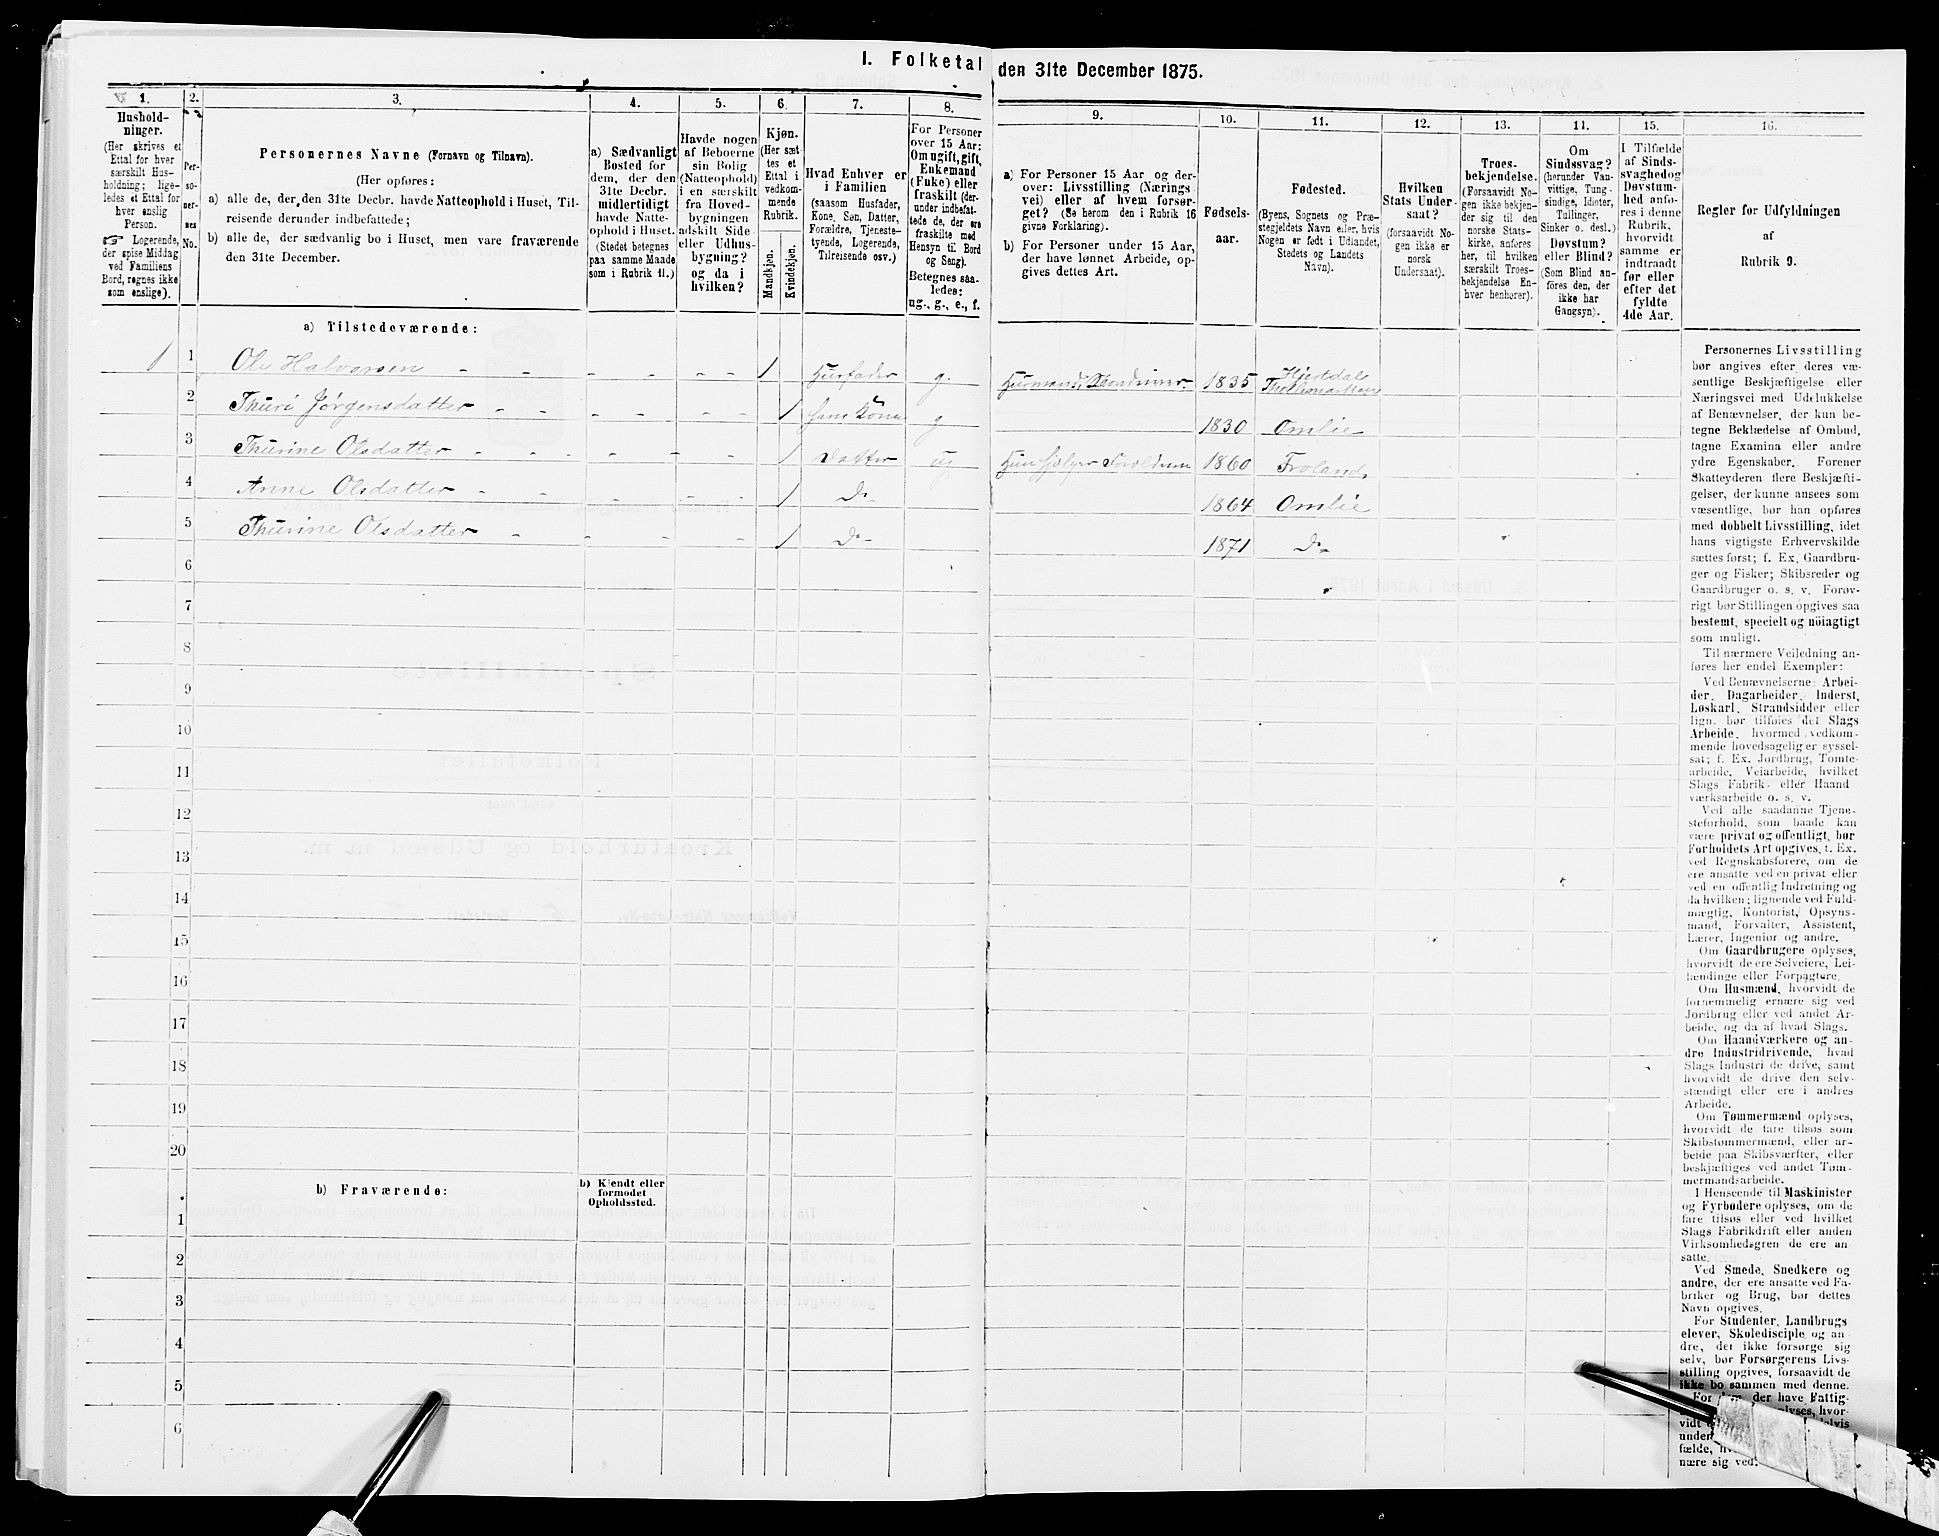 I. Folketal den 31te December 1875.
1. 2. 3. 4. 5. 6. 7. 8. 9. 10. 11. 12. 13. 14. 15. 16.
Hushold-
ninger.
(Her skrives et
Ettal for hver
særskilt Hus-
holdning; lige-
ledes et Ettal for
hver enslig
Person.
☞ Logerende,
der spise Middag
ved Familiens
Bord, regnes ikke
som enslige).
Per-
so-
ner-
nes
No.
Personernes Navne (Fornavn og Tilnavn).
(Her opføres:
a) alle de, der, den 31te Decbr. havde Natteophold i Huset, Til-
reisende derunder indbefattede;
b) alle de, der sædvanlig bo i Huset, men vare fraværende
den 31te December.
a) Sædvanligt
Bosted for
dem, der den
31te Decbr.
midlertidigt
havde Natte-
ophold i Huset.
(Stedet betegnes
paa samme Maade
som i Rubrik 11.)
Havde nogen
af Beboerne
sin Bolig
(Natteophold)
i en særskilt
fra Hoved-
bygningen
adskilt Side-
eller Udhus-
bygning?
og da i
hvilken?
Kjøn.
(Her sæt-
tes et
Ettal i
vedkom-
mende
Rubrik.
Mandkjøn.
Kvindekjøn.
Hvad Enhver er
i Familien
(saasom Husfader,
Kone, Søn, Datter,
Forældre, Tjeneste-
tyende, Logerende,
Tilreisende osv.)
For Personer
over 15 Aar:
Om ugift, gift,
Enkemand
(Enke) eller
fraskilt (der-
under indbefat-
tede de, der ere
fraskilte med
Hensyn til Bord
og Seng).
Betegnes saa-
ledes:
ug., g., e., f.
a) For Personer 15 Aar og der-
over: Livsstilling (Nærings-
vei) eller af hvem forsør-
get? (Se herom den i Rubrik 16
givne Forklaring).
b) For Personer under 15 Aar,
der have lønnet Arbeide, op-
gives dettes Art.
Fødsels-
aar.
Fødested.
(Byens, Sognets og Præ-
stegjeldets Navn eller, hvis
Nogen er født i Udlandet,
Stedets og Landets
Navn).
Hvilken
Stats Under-
saat?
(forsaavidt No-
gen ikke er
norsk
Undersaat).
Troes-
bekjendelse.
(Forsaavidt No-
gen ikke bekjen-
der sig til den
norske Stats-
kirke, anføres
her, til hvilken
særskilt Troes-
bekjendelse En-
hver henhører).
Om
Sindssvag?
(herunder Van-
vittige, Tung-
sindige, Idioter,
Tullinger,
Sinker o. desl.)
Døvstum?
eller Blind?
(Som Blind an-
føres den, der
ikke har
Gangsyn).
I Tilfælde
af Sinds-
svaghed og
Døvstum-
hed anfø-
res i denne
Rubrik,
hvorvidt
samme er
indtraadt
før eller
efter det
fyldte
4de Aar.
Regler for Udfyldningen
af
Rubrik 9.
a) Tilstedeværende:
1 1 Ole Halvorsen - - - - - 1 Husfader g. Husmand, 1835 Hjertdal Thellemarken
2 Thuri Jørgensdatter - - - - - 1 hans Kone g 1830 Omlie
3 Thurine Olsdatter - - - - - 1 datter ug Hun hjelper 1860 Froland,
4 Anne Olsdatter - - - - - 1 Do 1864 Omlie
5 Thurine Olsdatter - - - - 1 Do 1871 Do
6
7
8
9
10
11
12
13
14
15
16
17
18
19
20
b) Fraværende:
b) Kjendt eller
formodet
Opholdssted.
1
2
3
4
5
6
Personernes Livsstilling
bør angives efter deres væ-
sentlige Beskjæftigelse eller
Næringsvei med Udelukkelse
af Benævnelser, der kun be-
tegne Beklædelse af Ombud,
tagne Examina eller andre
ydre Egenskaber. Forener
Skatteyderen flere Beskjæfti-
gelser, der kunne ansees som
væsentlige, bør han opføres
med dobbelt Livsstilling, idet
hans vigtigste Erhvervskilde
sættes først; f. Ex. Gaardbru-
ger og Fisker; Skibsreder og
Gaardbruger o. s. v. Forøv-
rigt bør Stillingen opgives saa
bestemt, specielt og nöiagtigt
som muligt.
Til nærmere Veiledning an-
føres her endel Exempler:
Ved Benævnelserne: Arbei-
der, Dagarbeider, Inderst,
Løskarl, Strandsidder eller
lign. bør tilføies det Slags
Arbeide, hvormed vedkom-
mende hovedsagelig er syssel-
sat; f. Ex. Jordbrug, Tomte-
arbeide, Veiarbeide, hvilket
Slags Fabrik- eller Haand
værksarbeide o. s. v.
Ved alle saadanne Tjene-
steforhold, som baade kan
være privat og offentligt, bør
Forholdets Art opgives, f. Ex.
ved Regnskabsførere, om de
ere ansatte ved en privat eller
ved en offentlig Indretning og
da hvilken; lignende ved Fuld-
mægtig, Kontorist, Opsyns-
mand, Forvalter, Assistent,
Lærer, Ingeniør og andre.
Om Gaardbrugere oplyses,
hvorvidt de ere Selveiere, Lei-
lændinge eller Forpagtere.
Om Husmænd, hvorvidt de
fornemmelig ernære sig ved
Jordbrug eller ved andet Ar-
beide, og da af hvad Slags.
Om Haandværkere og an-
dre Industridrivende, hvad
Slags Industri de drive, samt
hvorvidt de drive den selv-
stændigt eller ere i andres
Arbeide.
Om Tømmermænd oplyses,
hvorvidt de fare tilsøs som
Skibstømmermænd, eller ar-
beide paa Skibsværfter, eller
beskjæftiges ved andet Tøm-
mermandsarbeide.
I Henseende til Maskinister
og Fyrbødere oplyses, om de
fare tilsøs eller ved hvilket
Slags Fabrikdrift eller anden
Virksomhedsgren de ere an-
satte.
Ved Smede, Snedkere og
andre, der ere ansatte ved Fa-
briker og Brug, bør dettes
Navn opgives.
For Studenter, Landbrugs
elever, Skoledisciple og an
dre, der ikke forsørge sig
selv, bør Forsørgerens Livs-
stilling opgives, forsaavidt de
ikke bo sammen med denne.
For der have Fattig-
hvor-
vidt
under
fælde,
nære sig ved.